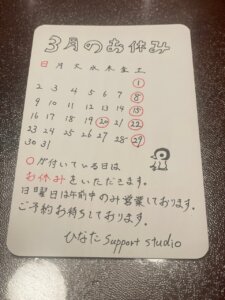 3月のお休み
日 月 火 水 木 金 土
1
2 3 4 5 6 7 8
9 10 11 12 13 14 15
16 17 18 19 20 21 22
23 24 25 26 27 28 29
30 31
○が付いている日は
お休みをいただきます。
日曜日は午前中のみ営業しております。
ご予約お待ちしております。
ひなた support studio